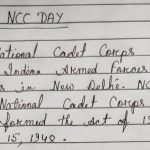 NCC DAY
National Cadet Corps
Indian Armed Forces
s in New Delhi. NC
National Cadet Corps
formed the act of 19
15, 1948.